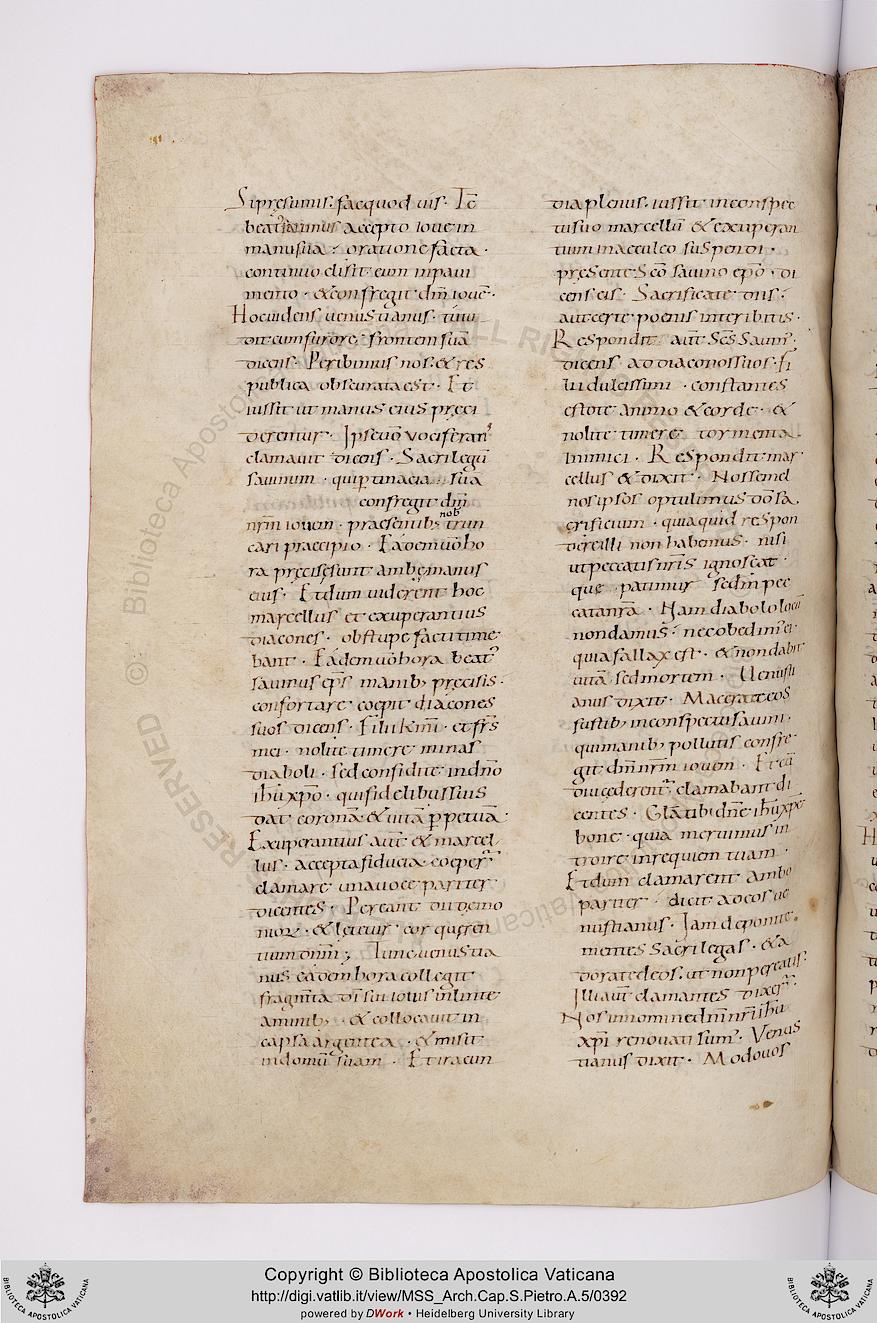 Si presumis. fac quod uis. Tc̄
beatꝰ sauinus accepto ioue in
manu sua. oratione facta.
continuo elisit eum in paui
mento. & confregit dm̄ iouē.
Hoc uidens uenustianus. tutu
dit cum furore frontem suā
dicens. Peribimus nos. & res
publica obscurata est. Et
iussit ut manus eius preci
derentur. Ipse uō uociferanꝰ
clamauit dicens. Sacrilegū
sauinum. qui ptinacia sua
confregit dm̄
nrm̄ iouem. praesentibꝫ nob̄ trun
cari praecipio. Eadem uō ho
ra precise sunt ambe manus
eius. Et dum uiderent hoc
marcellus et exuperantius
diacones. obstupefacti time
bant. Eadem uō hora beatꝰ
sauinus ep̄s manibꝫ precisis.
confortare coepit diacones
suos dicens. Filii k̄mi. et frs̄
mei. nolite timere minas
diaboli. sed confidite in dn̄o
ihū xp̄o. qui fidelibus suis
dat coronā & uitā ꝑpetuā.
Exuperantius aut̄ & marcel
lus. accepta fiducia coeper̄
clamare una uoce pariter
dicentes. Pereant dii demo
nior̄. & letetur cor queren
tium dnm̄; Tunc uenustia
nus eadem hora collegit
fragm̄ta di sui iouis in linte
aminibꝫ. & collocauit in
capsa argentea. & misit
in domū suam. Et iracun
dia plenus. iussit in conspec
tu suo marcellū & exuperan
tium in aeculeo suspendi.
presente scō sauino ep̄o. di
cens eis. Sacrificate diis.
aut certe poenis interibitis.
Respondit aut̄ Scs̄ Sauinꝰ.
dicens ad diaconos suos. fi
lii dulcissimi. constantes
estote animo & corde. &
nolite timere tormenta
inimici. Respondit mar
cellus & dixit. Nos semel
nos ipsos optulimus dō sa
crificium. quia quid respon
dere illi non habemus. nisi
ut peccatis nrīs ignoscat
que patimur sedm̄ pec
cata nrā. Nam diabolo locū
non damus. nec obedimꝰ ei
quia fallax est. & non dabit
uitā sed mortem. Uenusti
anus dixit. Macerate eos
fustibꝫ in conspectu sauini.
qui manibꝫ pollutis confre
git dm̄ nrm̄ iouem. Et cū
diu cederent̄ clamabant di
centes. Glā tibi dn̄e ihū xp̄e
bone. quia meruimus in
troire in requiem tuam.
Et dum clamarent ambo
pariter. dicit ad eos ue
nustianus. Iam deponite
mentes sacrilegas. & a
dorate deos. ut non pereatis.
Illi aut̄ clamantes dixer̄
Nos in nomine dn̄i nrī ihū
xp̄i renouati sumꝰ. Venus
tianus dixit. Modo uos
Copyright © Biblioteca Apostolica Vaticana
http://digi.vatlib.it/view/MSS_Arch.Cap.S.Pietro.A.5/0392
powered by DWork • Heidelberg University Library